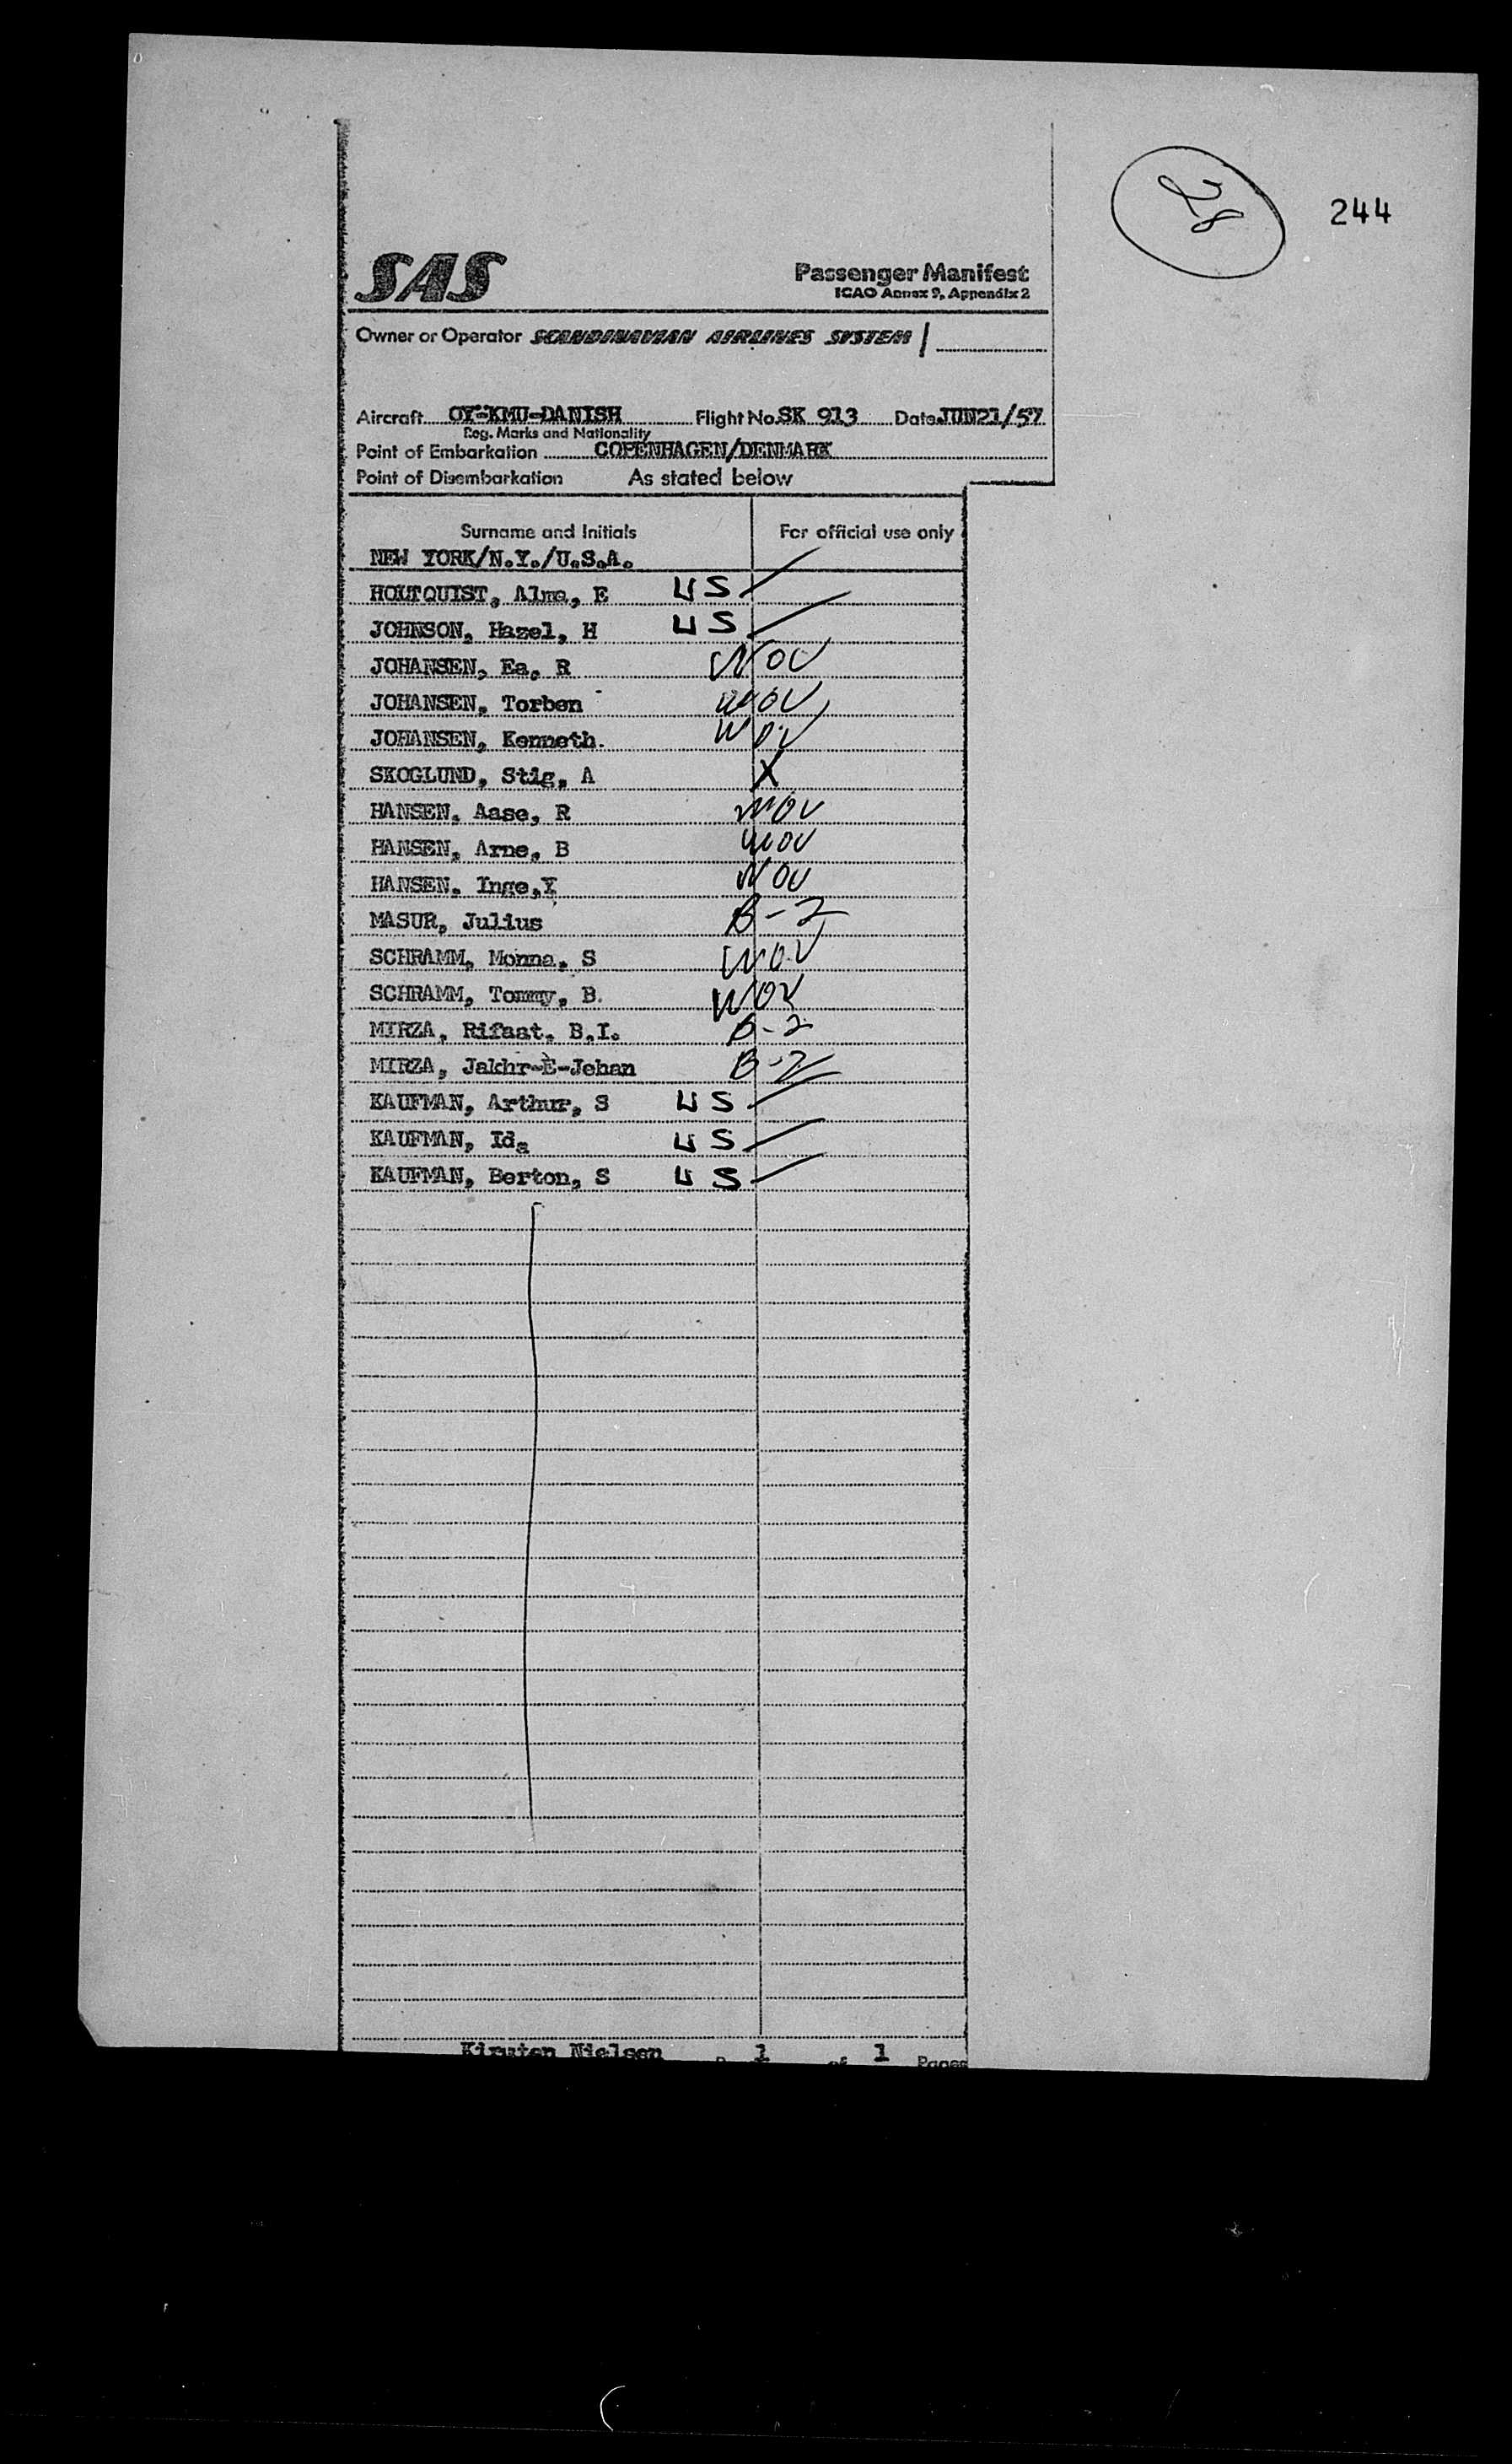 28
244
SAS
Passenger Manifest
ICAO Annex 9, Appendix 2
Owner or Operator SCANDINAVIAN AIRLINES SYSTEM
Aircraft OY-KMU-DANISH Flight No. SK 913 Date JUN21/57
Reg. Marks and Nationality
Point of Embarkation COPENHAGEN/DENMARK
Point of Disembarkation As stated below
Surname and Initials For official use only
NEW YORK/N.Y./U.S.A.
HOLTQUIST, Alma, E US
JOHNSON, Hazel, H US
JOHANSEN, Ea, R NOV
JOHANSEN, Torben NOV
JOHANSEN, Kenneth. NOV
SKOGLUND, Stig, A X
HANSEN, Aase, R NOV
HANSEN, Arne, B NOV
HANSEN. Inge,Y NOV
MASUR, Julius B-2
SCHRAMM, Monna, S NOV
SCHRAMM, Tommy, B. NOV
MIRZA, Rifaat, B.I. B-2
MIRZA, Jakhr-E-Jehan B-2
KAUFMAN, Arthur, S US
KAUFMAN, Ida US
KAUFMAN, Berton, S US
Nielsen 1 of 1 Pages